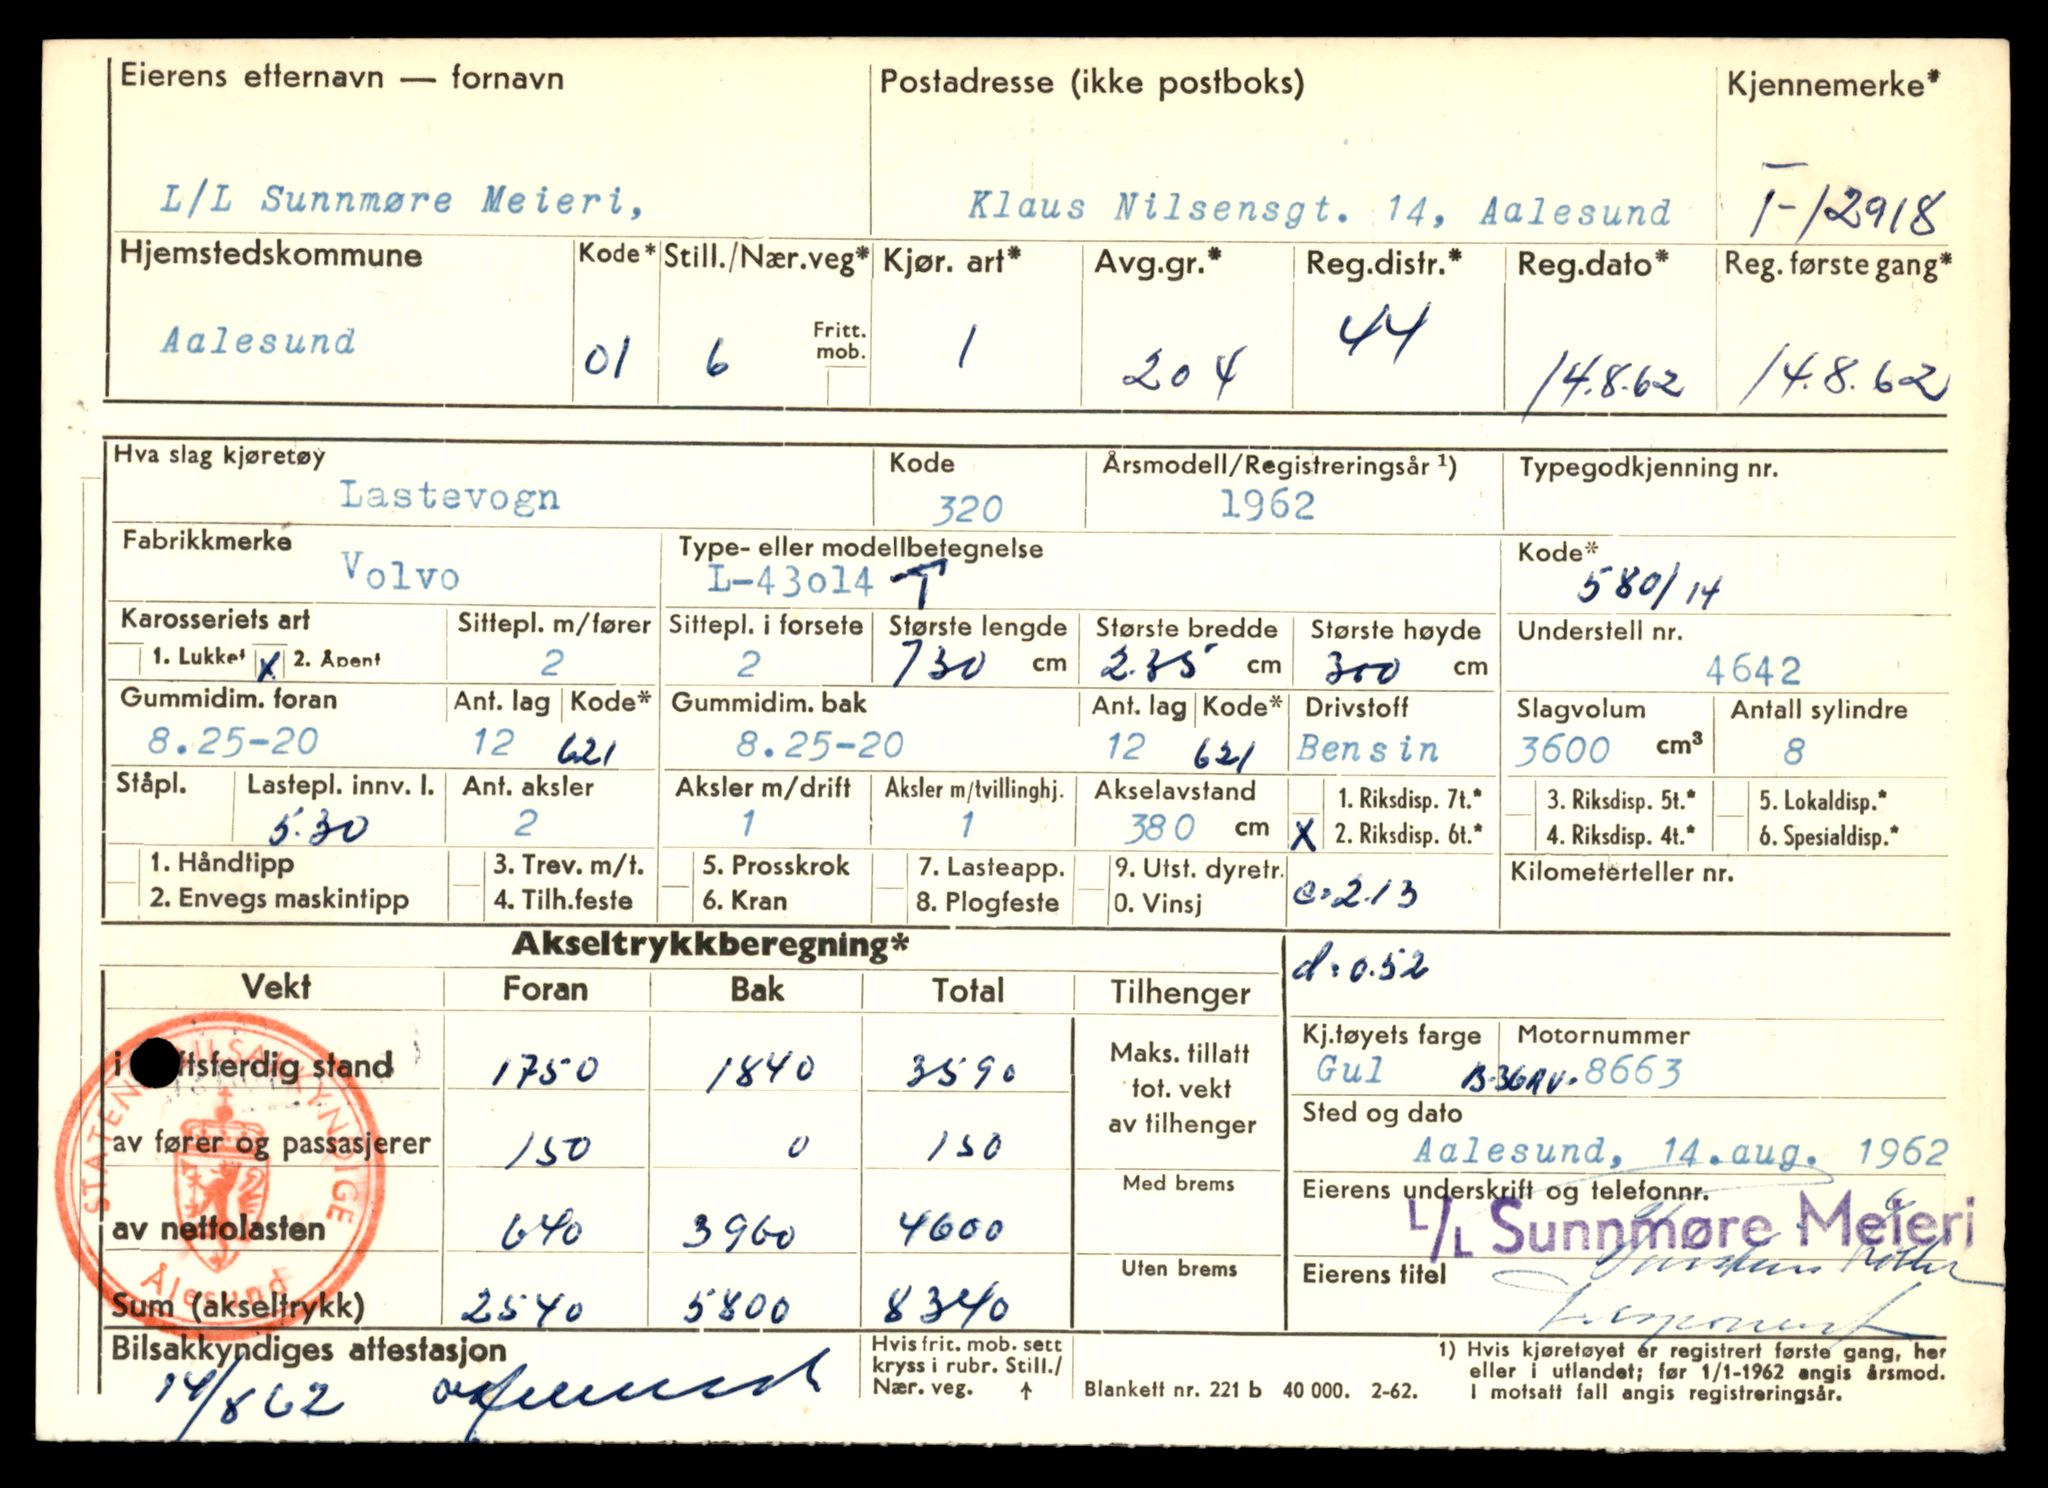 Eierens etternavn — fornavn Postadresse (ikke postboks) Kjennemerke*
L/L Sunnmøre Meieri, Klaus Nilsensgt. 14, Aalesund T-12918
Hjemstedskommune Kode* Still./Nær.veg* Kjør. art* Avg.gr.* Reg.distr.* Reg.dato* Reg. første gang*
Aalesund 01 6 Fritt. mob. 1 204 44 14.8.62 14.8.62
Hva slag kjøretøy Kode Årsmodell/Registreringsår ¹) Typegodkjenning nr.
Lastevogn 320 1962
Fabrikkmerke Type- eller modellbetegnelse Kode*
Volvo L-43o14 -T 580/14
Karosseriets art Sittepl. m/fører Sittepl. i forsete Største lengde Største bredde Største høyde Understell nr.
1. Lukket X 2. Åpent 2 2 730 cm 2.35 cm 300 cm 4642
Gummidim. foran Ant. lag Kode* Gummidim. bak Ant. lag Kode* Drivstoff Slagvolum Antall sylindre
8.25-20 12 621 8.25-20 12 621 Bensin 3600 cm³ 8
Ståpl. Lastepl. innv. l. Ant. aksler Aksler m/drift Aksler m/tvillinghj. Akselavstand 1. Riksdisp. 7t.* 3. Riksdisp. 5t.* 5. Lokaldisp.*
5.30 2 1 1 380 cm X 2. Riksdisp. 6t.* 4. Riksdisp. 4t.* 6. Spesialdisp.*
1. Håndtipp 3. Trev. m/t. 5. Prosskrok 7. Lasteapp. 9. Utst. dyretr. Kilometerteller nr.
2. Envegs maskintipp 4. Tilh.feste 6. Kran 8. Plogfeste 0. Vinsj c=2.13
Akseltrykkberegning*
d=0.52
Vekt Foran Bak Total Tilhenger
i ftsferdig stand 1750 1840 3590 Maks. tillatt tot. vekt av tilhenger
Kj.tøyets farge Motornummer
Gul B-36AV- 8663
Sted og dato
av fører og passasjerer 150 0 150
Aalesund, 14.aug. 1962
Med brems Eierens underskrift og telefonnr.
av nettolasten 640 3960 4600
L/L Sunnmøre Meieri
Uten brems Eierens titel
Sum (akseltrykk) 2540 5800 8340
Disponent
STATENS BILSAKKYNDIGE
Ålesund
Bilsakkyndiges attestasjon
14/8 62
Hvis frit. mob. sett
kryss i rubr. Still./
Nær. veg. ↑
Blankett nr. 221 b 40 000. 2-62.
1) Hvis kjøretøyet er registrert første gang, her
eller i utlandet; før 1/1-1962 angis årsmod.
I motsatt fall angis registreringsår.